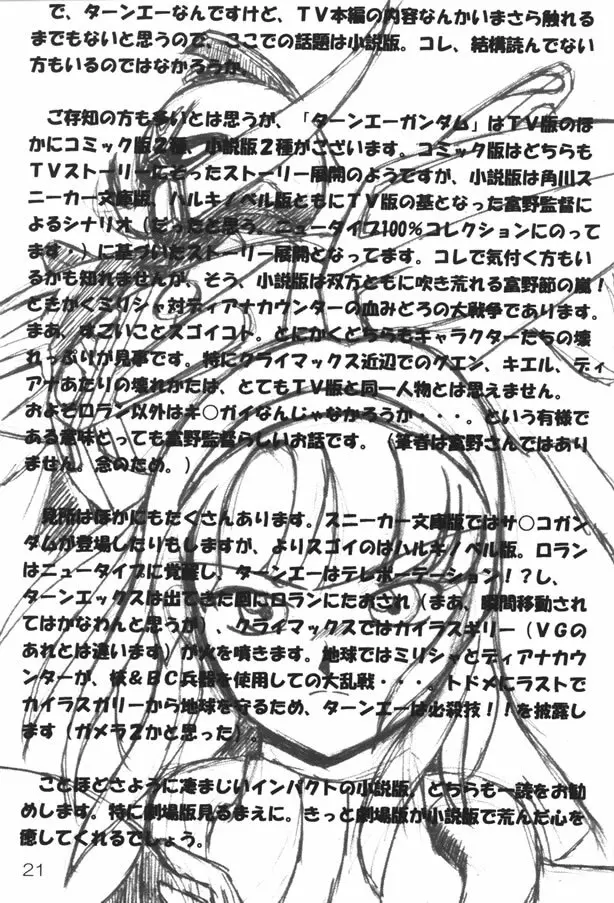 で、ターンエーなんですけど、ＴＶ本編の内容なんかいまさら触れる
までもないと思うので、ここでの話題は小説版。コレ、結構読んでない
方もいるのではなかろうか。
ご存知の方も多いとは思うが、「ターンエーガンダム」はＴＶ版のほ
かにコミック版２種、小説版２種がございます。コミック版はどちらも
ＴＶストーリーにそったストーリー展開のようですが、小説版は角川ス
ニーカー文庫版、ハルキノベル版ともにＴＶ版の基となった富野監督に
よるシナリオ（だったと思う。ニュータイプ100％コレクションにのって
ます。）に基づいたストーリー展開となってます。コレで気付く方もい
るかも知れませんが、そう、小説版は双方ともに吹き荒れる富野節の嵐！
ときかくミリシャ対ディアナカウンターの血みどろの大戦争であります。
まあ、すごいことスゴイコト。とにかくどちらもキャラクターたちの壊
れっぷりが見事です。特にクライマックス近辺でのグエン、キエル、ディ
アナあたりの壊れかたは、とてもＴＶ版と同一人物とは思えません。
およそロラン以外はキ○ガイなんじゃなかろうか・・・。という有様で
ある意味とっても富野監督らしいお話です。（筆者は富野さんではあり
ません。念のため。）
見所はほかにもたくさんあります。スニーカー文庫版ではサ○コガン
ダムが登場したりもしますが、よりスゴイのはハルキノベル版。ロラン
はニュータイプに覚醒し、ターンエーはテレポーテーション！？し、
ターンエックスは出てきた回にロランにたおされ（まあ、瞬間移動され
てはかなわんと思うが）、クライマックスではカイラスギリー（ＶＧの
あれとは違います）が火を噴きます。地球ではミリシャとディアナカウ
ンターが、核＆ＢＣ兵器を使用しての大乱戦・・・。トドメにラストで
カイラスガリーから地球を守るため、ターンエーは必殺技！！を披露し
ます（ガメラ２かと思った）。
ことほどさように凄まじいインパクトの小説版、どちらも一読をお勧
めします。特に劇場版見るまえに。きっと劇場版が小説版で荒んだ心を
癒してくれるでしょう。
21